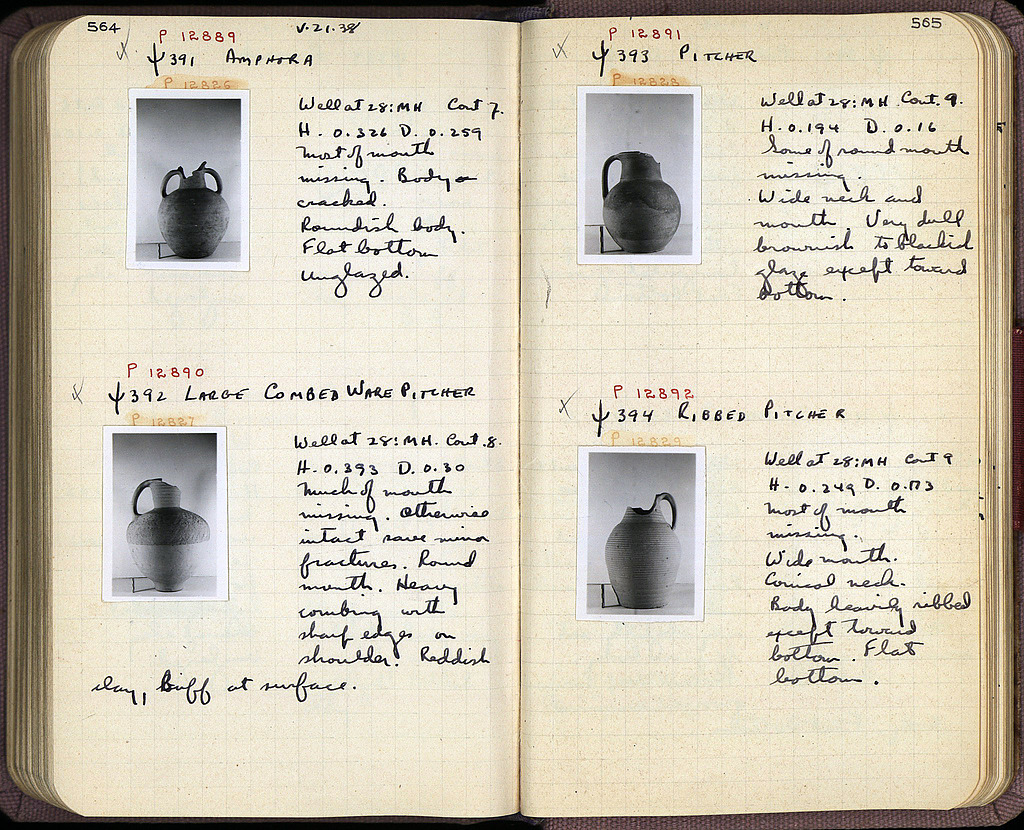 564
V.21.38
P 12889
ψ 391 AMPHORA
P 12826
Well at 28:MH Cont 7.
H. 0.326 D. 0.259
Most of mouth
missing. Body
cracked.
Roundish body.
Flat bottom
Unglazed.
P 12890
ψ 392 LARGE COMBED WARE PITCHER
P 12827
Well at 28:MH. Cont. 8.
H. 0.393 D. 0.30
Much of mouth
missing. Otherwise
intact save minor
fractures. Round
mouth. Heavy
combing with
sharp edges on
shoulder. Reddish
clay, Buff at surface.
565
P 12891
ψ 393 PITCHER
P 12828
Well at 28:MH Cont. 9.
H. 0.194 D. 0.16
Some of round mouth
missing.
Wide neck and
mouth Very dull
brownish to blackish
glaze except toward
bottom.
P 12892
ψ 394 RIBBED PITCHER
P 12829
Well at 28:MH Cont 9
H. 0.249 D. 0.173
Most of mouth
missing.
Wide mouth.
Conical neck.
Body heavily ribbed
except toward
bottom. Flat
bottom.